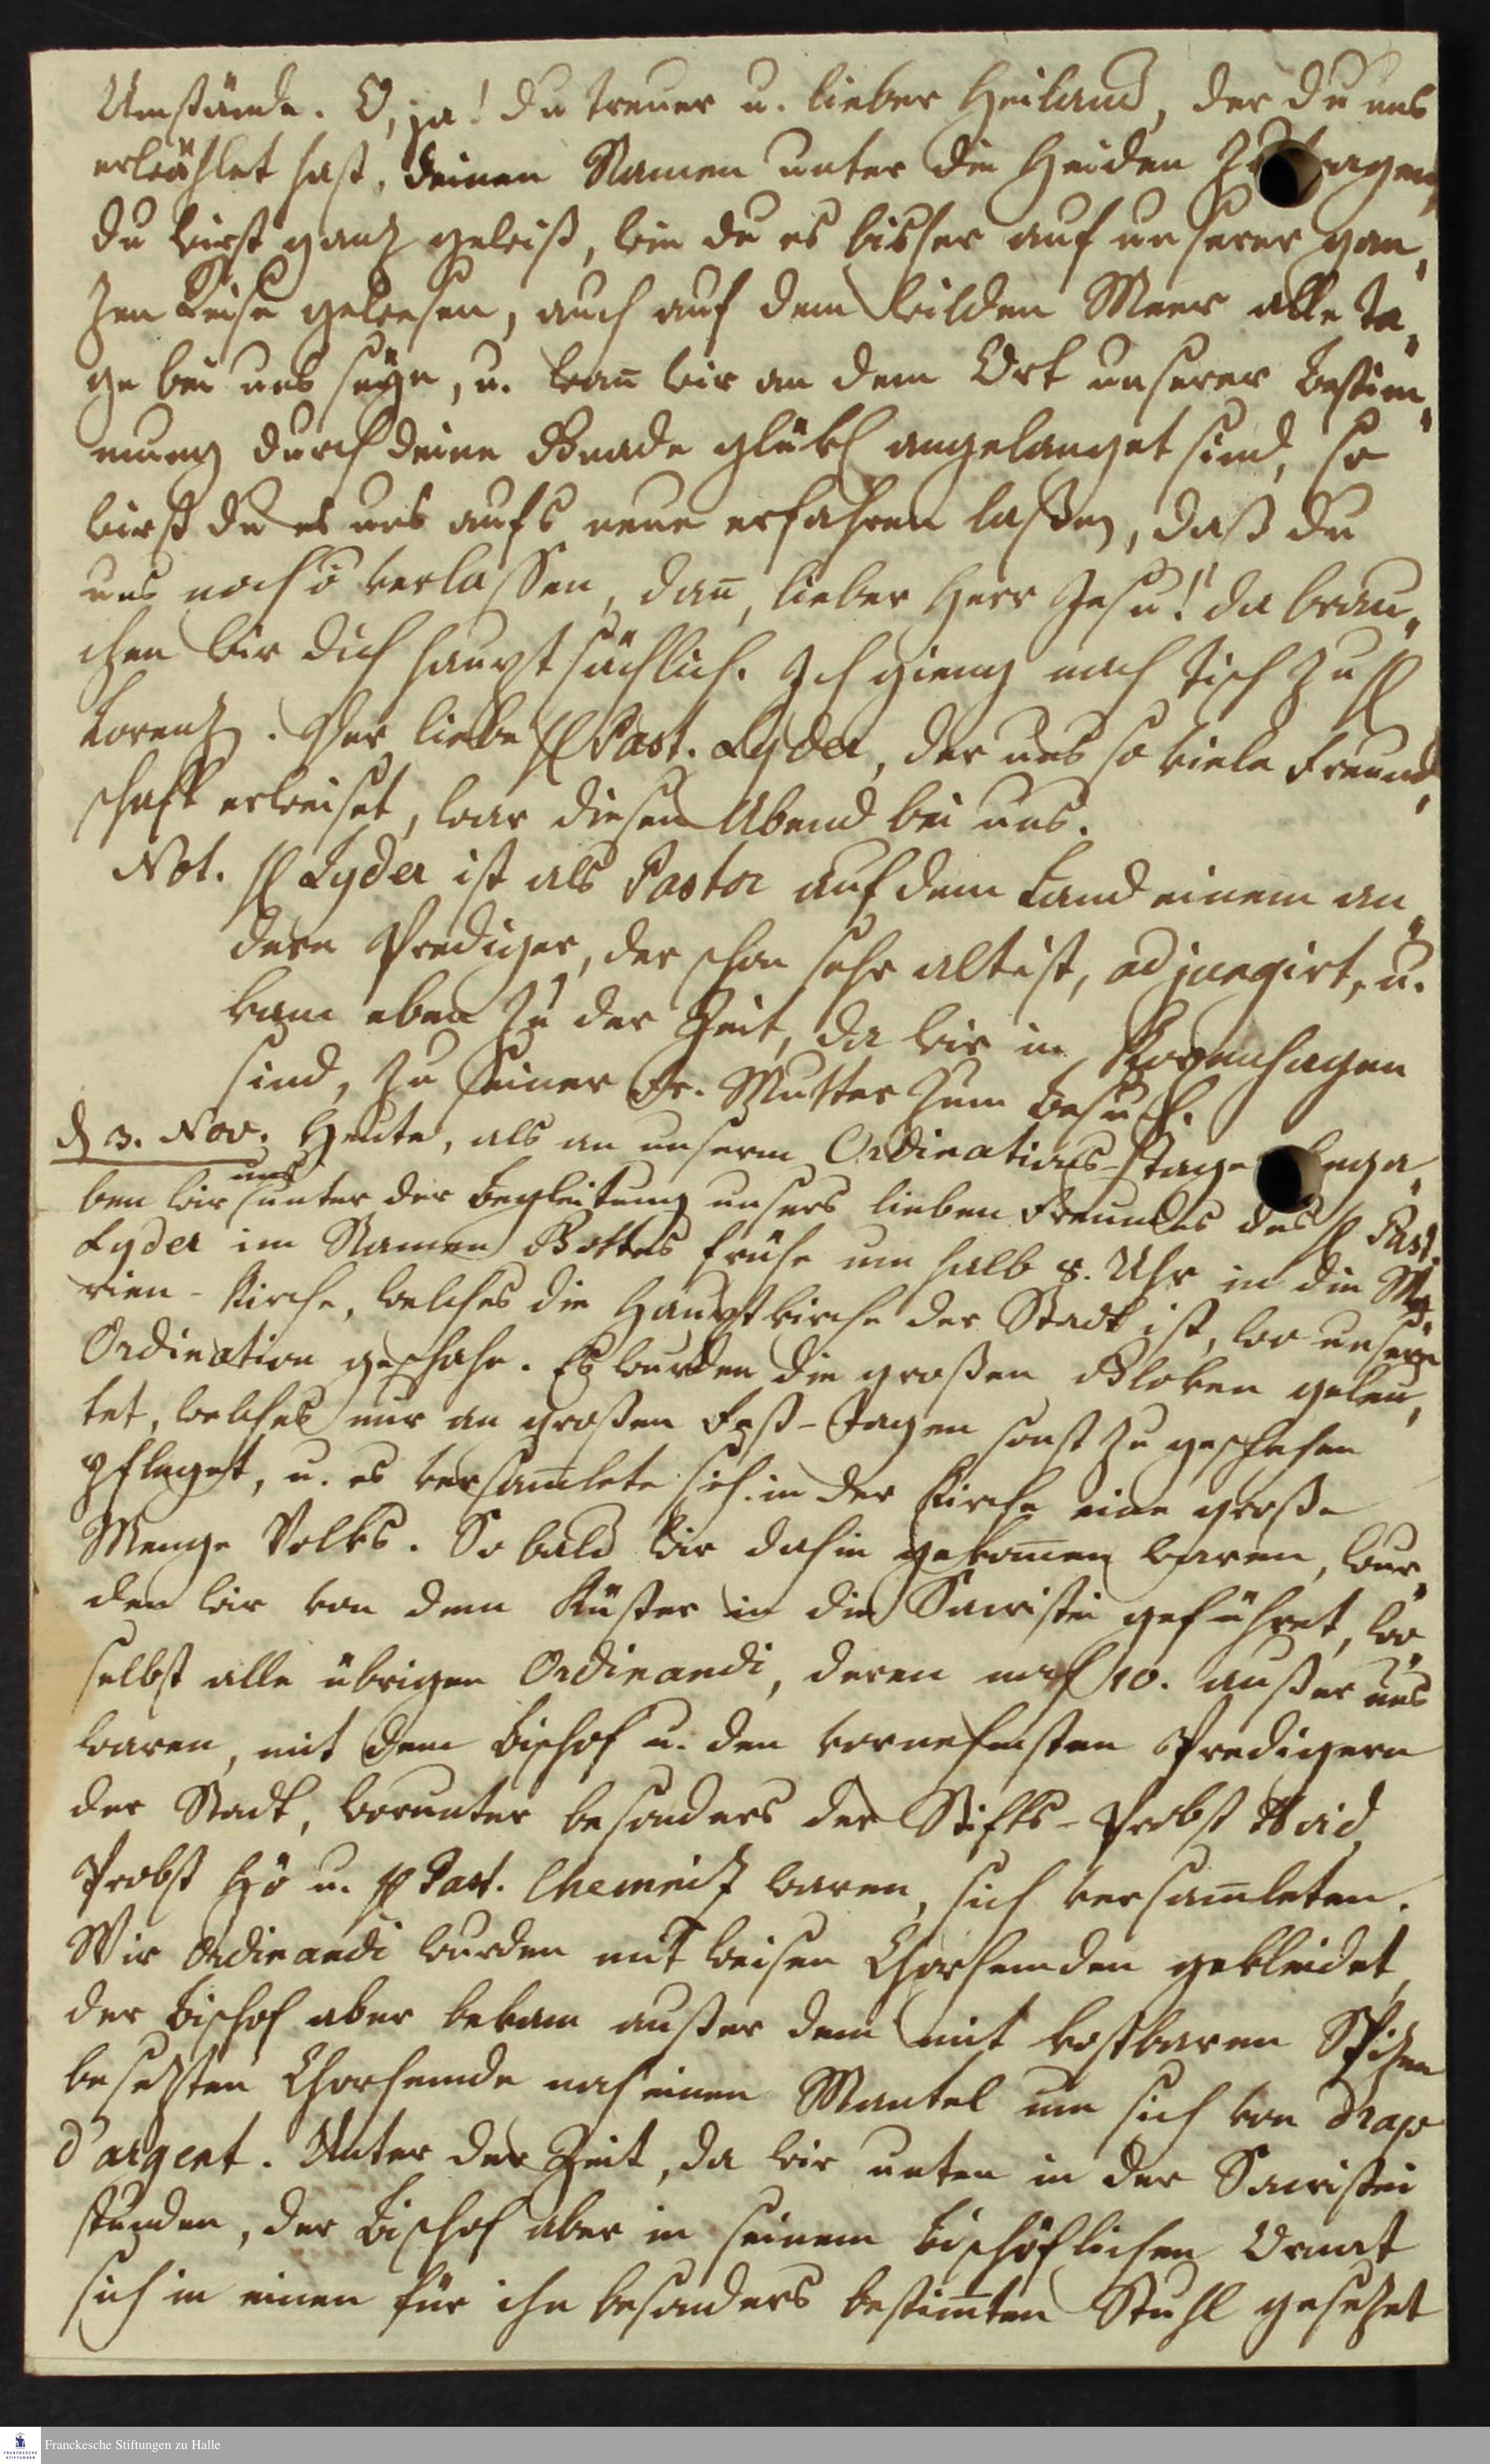 Umstände. O, ja! du treuer u. lieber Heiland, der du uns
erwählet hast, deinen Namen unter die Heiden zu tragen,
du wirst ganz gewiß, wie du es bisher auf unserer gan„
zen Reise gewesen, auch auf dem wilden Meer alle Ta„
ge bei uns seÿn, u. wan̄ wir an dem Ort unserer Bestim„
mung durch deine Gnade glükl angelanget sind, so
wirst du es uns aufs neue erfahren laßen, daß du
uns noch verlassen, dan̄, lieber Herr Jesu! da brau„
chen wir dich hauptsächlich. Ich gieng nach Tisch zu H
Lorenz. Der liebe H Past. Lyder, der uns so viele Freund„
schaft erweiset, war diesen Abend bei uns.
Not. H Lyder ist als Pastor auf dem Land einem an„
dern Prediger, der schon sehr alt ist, adjungirt, u.
kam eben zu der Zeit, da wir in Kopenhagen
sind, zu seiner Fr. Mutter zum Besuch.
d 3. Nov. Heute, als an unserm Ordinations-Tage bega„
ben wir uns unter der Begleitung unsers lieben Freundes des H Past.
Lyder im Namen Gottes frühe um halb 8. Uhr in die Ma„
rien-Kirche, welches die Hauptkirche der Stadt ist, wo unsere
Ordination geschahe. Es wurden die großen Gloken geleu„
tet, welches nur an großen Fest-Tagen sonst zu geschehen
pfleget, u. es versam̄lete sich in der Kirche eine große
Menge Volks. So bald wir dahin gekom̄en waren, wur„
den wir von dem Küster in die Sacristei geführet, wo„
selbst alle übrigen Ordinandi, deren noch 10. außer uns
waren, mit dem Bischof u. den vornehmsten Predigern
der Stadt, worunter besonders der Stifts-Probst
Probst u. H Past. Chemniz waren, sich versam̄leten.
Wir Ordinandi wurden mit weisen Chorhemden gekleidet,
der Bischof aber bekam außer dem mit kostbaren Spizen
besezten Chorhemde noch einen Mantel um sich von drap
d'argent. Unter der Zeit, da wir unten in der Sacristei
stunden, der Bischof aber in seinem Bischöflichen Ornat
sich in einen für ihn besonders bestim̄ten Stuhl gesezet
Franckesche Stiftungen zu Halle